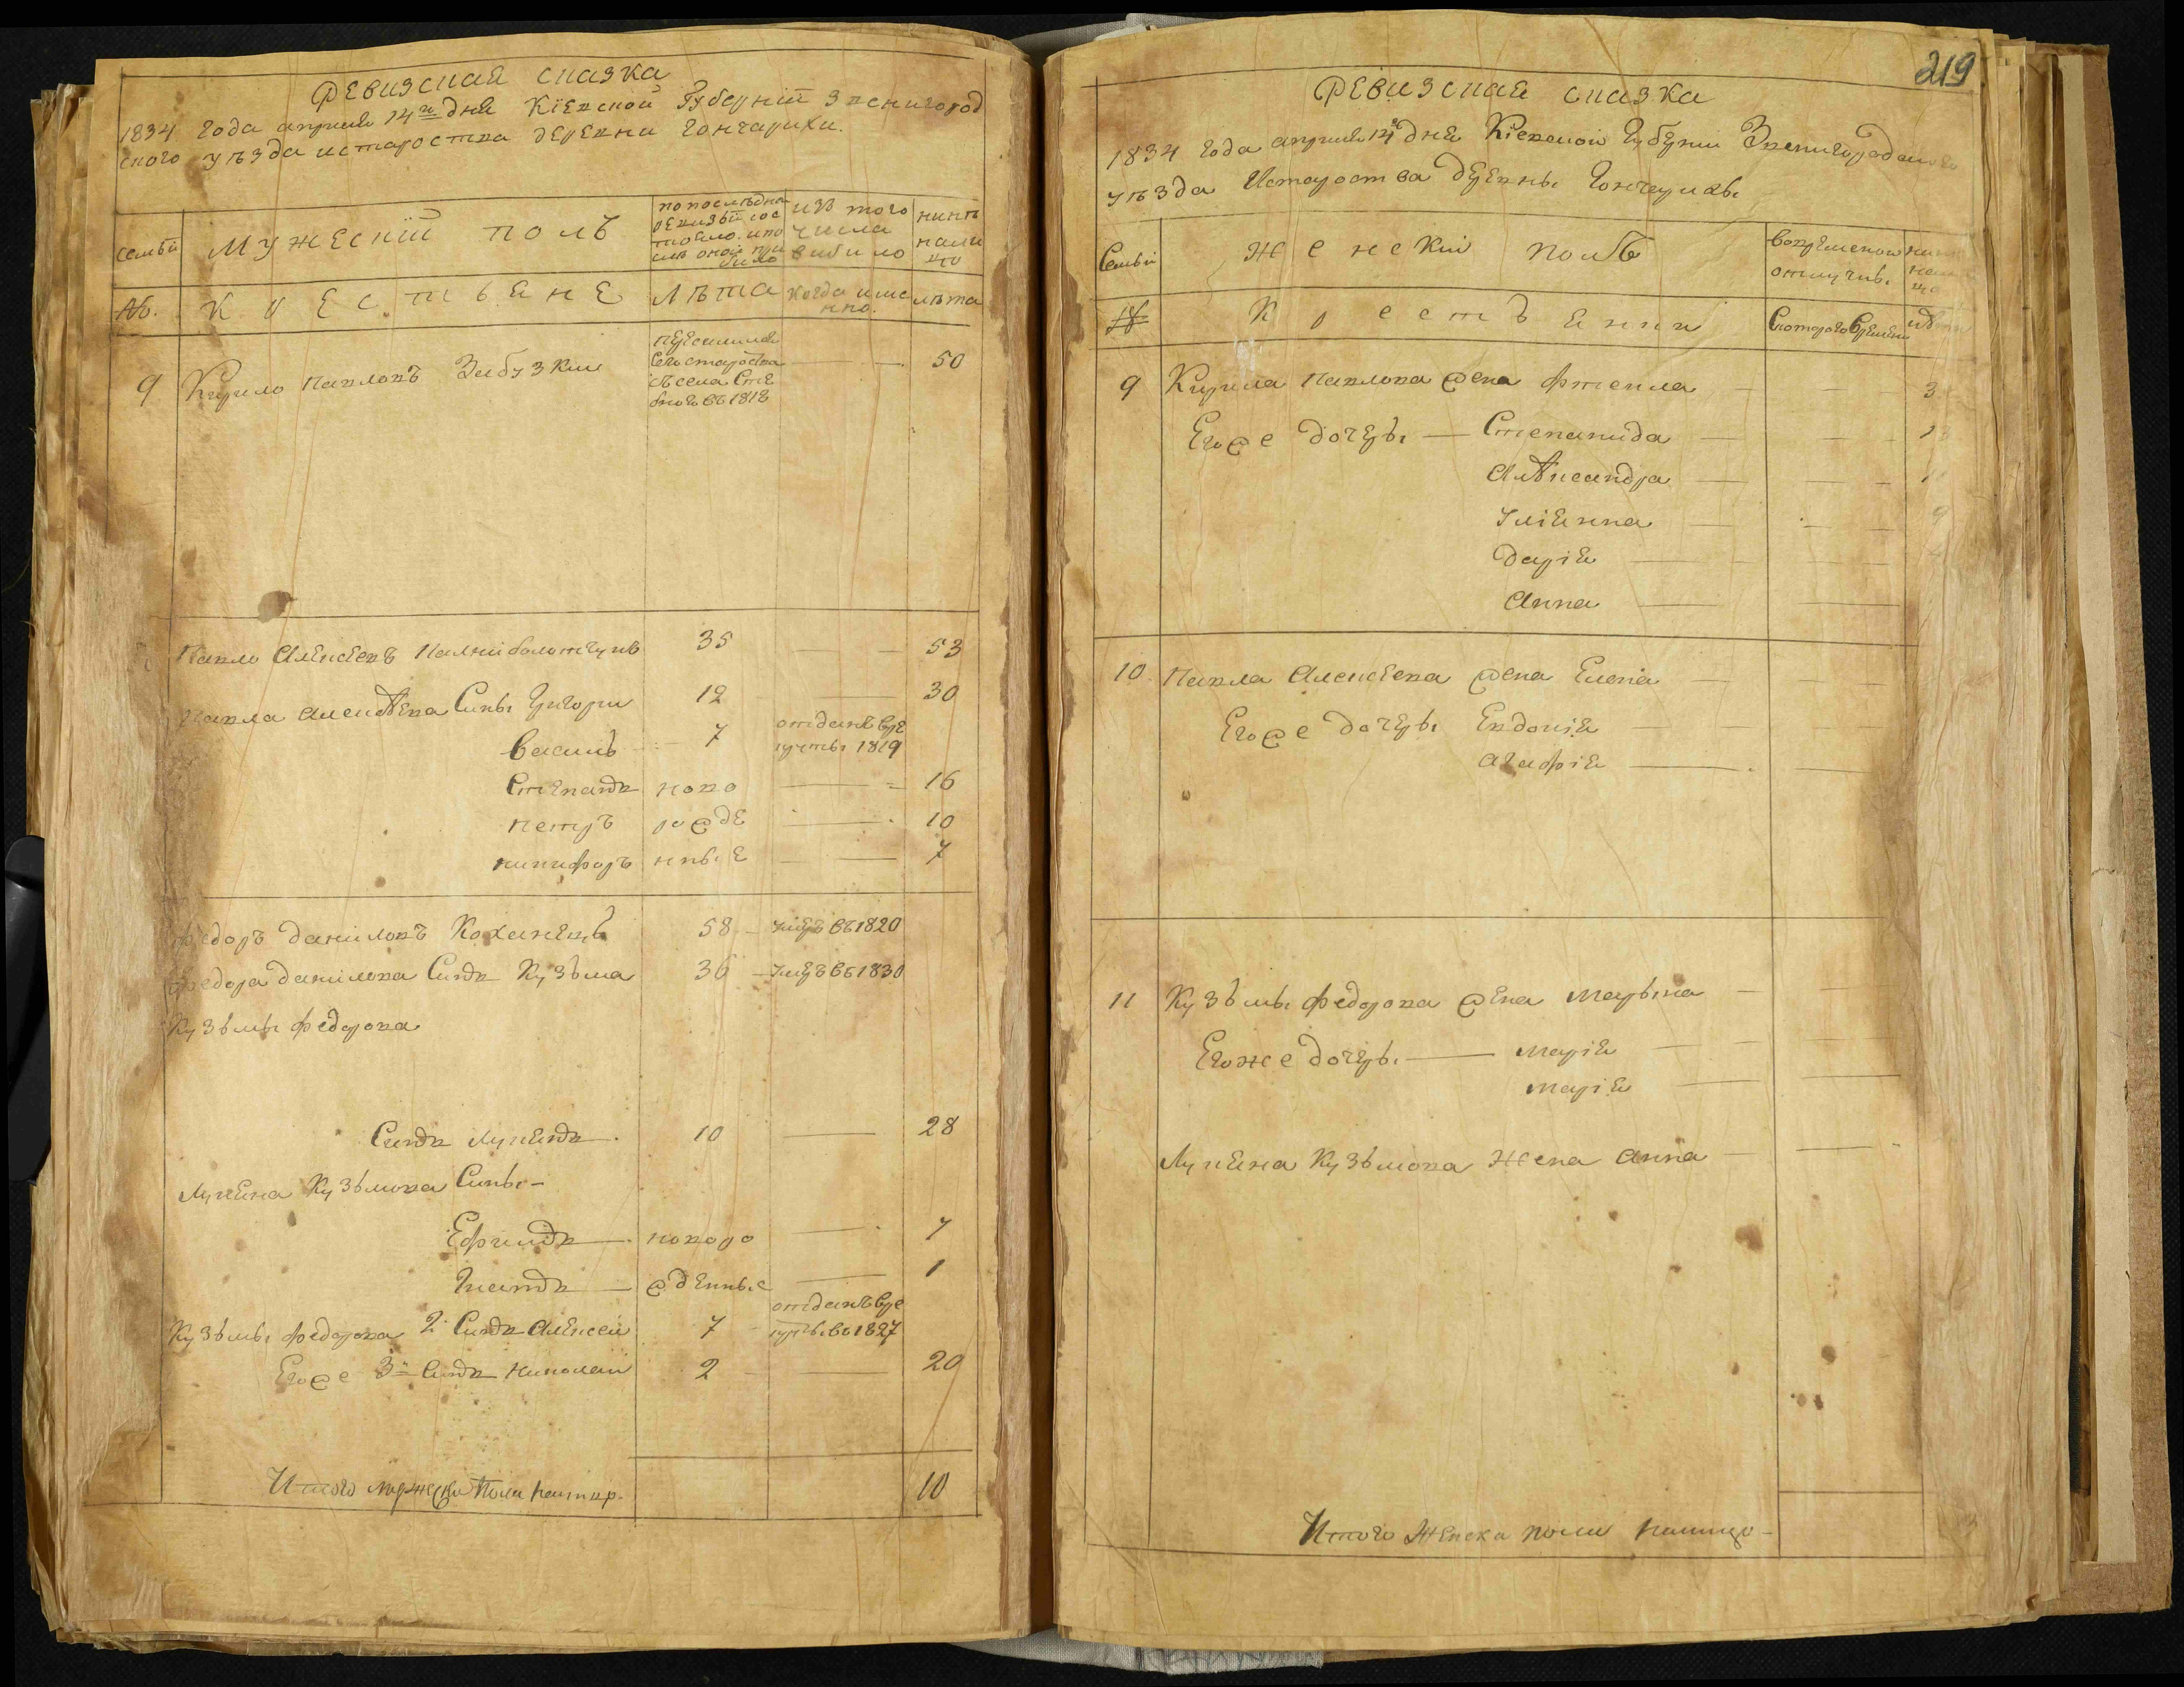 РЕВИЗСКАЯ СКАЗКА
1834 года апреля 14го дня Кіевской Губерніи Звенигород
ского уѣзда истароства деревни Гончарихи.
семьи
МУЖЕСКІЙ ПОЛЪ
по последней
ревизіи сос
тояло и по
слѣ оной при
было
изъ того
числа
выбило
нынѣ
нали
цо
№.
КРЕСТЬЯНЕ
Лѣта
Когда име
нно.
лѣта
9 Кирило Павловъ Забузкій
пересилился
сего староства
съ села
въ 181
50
Павло Алексѣевъ 35 53
Павла Алексѣева Сыны Григори 12 30
Василь 7 отданъ вре
круты 1819
Степанъ ново 16
Петръ рожде 10
Никифоръ нные 7
Федоръ Даниловъ Коханецъ 58 умеръ въ 1820
Федора Данилова Сынъ Кузьма 36 умеръ въ 1830
Кузьмы Федорова
Сынъ Лукянъ 10 28
Лукяна Кузьмова Сыны
Ефимъ новоро 7
Иванъ жденные 1
Кузьмы Федорова 2 Сынъ Алексей 7 отданъ вре
круты въ 1827
Егоже 3й Сынъ Николай 2 20
Итого мужеска пола наличо 10
219
РЕВИЗСКАЯ СКАЗКА
1834 года апреля 14го дня Кіевской Губернии Звенигородского
уѣзда Истароства деревны Гончарихы
Семьи
Женскій полъ
вовременой
отлучкы
№
Крестьянки
Скоторого времени
лѣта
9 Кирила Павлова жена 3
Егоже дочеры Степанида 13
Алѣксандра
Уліянна 9
Дарія
Анна
10 Павла Алексѣева жена Елена
Егоже дочеры Евдокія
Агафія
11 Кузьмы Федорова жена Марьяна
Егоже дочеры Марія
Марія
Лукяна Кузьмова жена Анна
Итого женска пола налицо